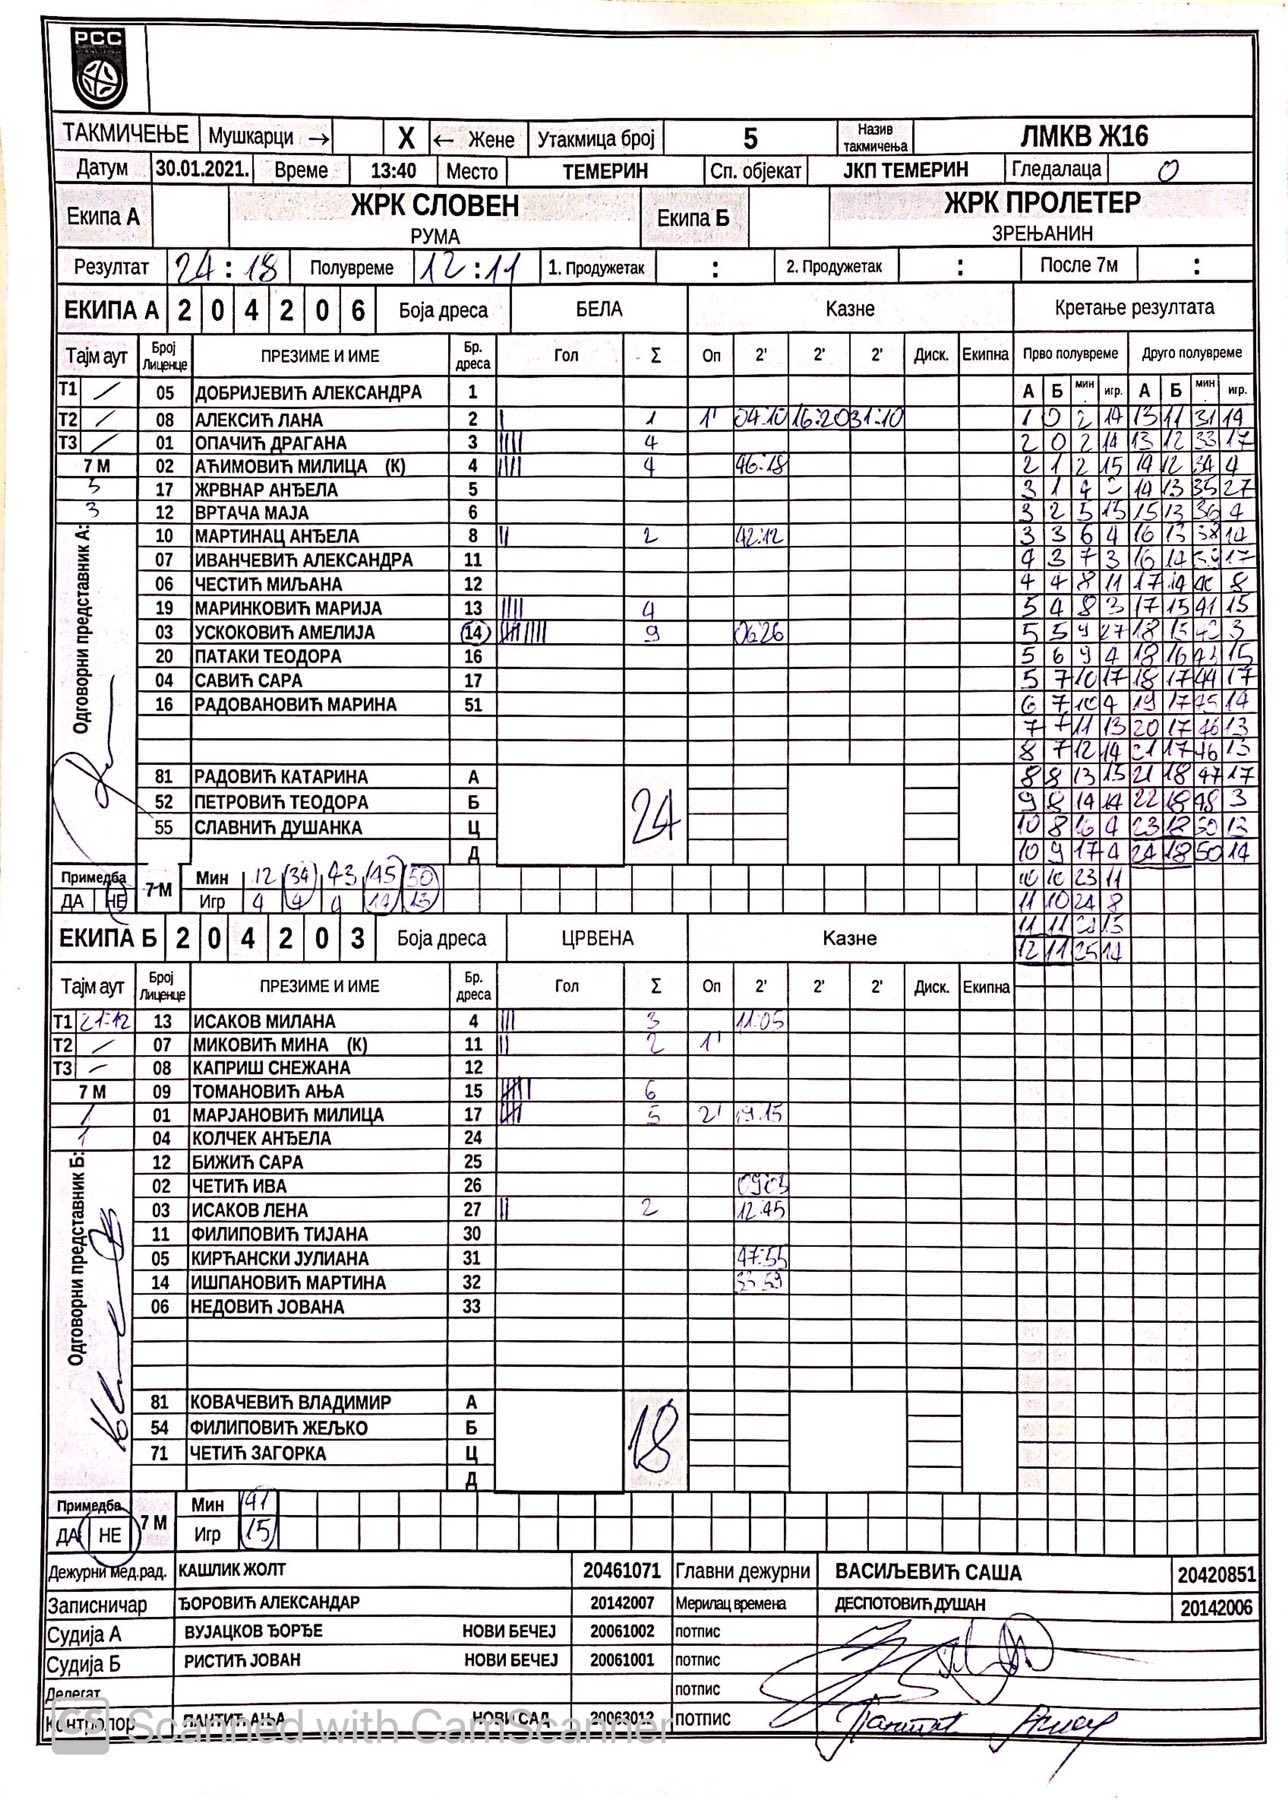 РСС
ТАКМИЧЕЊЕ Мушкарци → X ← Жене Утакмица број 5 Назив такмичења ЛМКВ Ж16
Датум 30.01.2021. Време 13:40 Место ТЕМЕРИН Сп. објекат ЈКП ТЕМЕРИН Гледалаца 0
Екипа А ЖРК СЛОВЕН Екипа Б ЖРК ПРОЛЕТЕР
РУМА ЗРЕЊАНИН
Резултат 24:18 Полувреме 12:11 1. Продужетак : 2. Продужетак : После 7м :
ЕКИПА А 2 0 4 2 0 6 Боја дреса БЕЛА Казне Кретање резултата
Тајм аут Број Лиценце ПРЕЗИМЕ И ИМЕ Бр. дреса Гол Σ Оп 2' 2' 2' Диск. Екипна Прво полувреме Друго полувреме
Т1 / 05 ДОБРИЈЕВИЋ АЛЕКСАНДРА 1 А Б мин . игр. А Б мин . игр.
Т2 / 08 АЛЕКСИЋ ЛАНА 2 I 1 1' 04:10 16:20 31:10 1 0 2 14 13 11 31 14
Т3 / 01 ОПАЧИЋ ДРАГАНА 3 IIII 4 2 0 2 14 13 12 33 17
7 М 02 АЋИМОВИЋ МИЛИЦА (К) 4 IIII 4 46:18 2 1 2 15 14 12 34 4
5 17 ЖРВНАР АНЂЕЛА 5 3 1 4 2 14 13 35 27
3 12 ВРТАЧА МАЈА 6 3 2 5 15 15 13 36 4
10 МАРТИНАЦ АНЂЕЛА 8 II 2 42:12 3 3 6 4 16 13 38 14
07 ИВАНЧЕВИЋ АЛЕКСАНДРА 11 4 3 7 3 16 14 39 17
06 ЧЕСТИЋ МИЉАНА 12 4 4 8 11 17 14 40 8
19 МАРИНКОВИЋ МАРИЈА 13 IIII 4 5 4 8 3 17 15 41 15
03 УСКОКОВИЋ АМЕЛИЈА 14 9 06:26 5 5 9 27 18 15 3
20 ПАТАКИ ТЕОДОРА 16 5 6 9 4 18 16 15
04 САВИЋ САРА 17 5 7 10 17 18 17 44 17
16 РАДОВАНОВИЋ МАРИНА 51 6 7 10 4 19 17 45 14
7 7 11 13 20 17 46 13
8 7 12 14 21 17 46 13
81 РАДОВИЋ КАТАРИНА А 24 8 8 13 15 21 18 47 17
52 ПЕТРОВИЋ ТЕОДОРА Б 9 8 14 14 22 18 48 3
55 СЛАВНИЋ ДУШАНКА Ц 10 8 16 4 23 18 50 13
Д 10 9 17 4 24 18 50 14
Примедба 7 М Мин 12 34 43 45 50 10 10 23 11
ДА НЕ Игр 4 4 4 14 13 11 10 24 8
11 11 15
ЕКИПА Б 2 0 4 2 0 3 Боја дреса ЦРВЕНА Казне 12 11 25 14
Тајм аут Број Лиценце ПРЕЗИМЕ И ИМЕ Бр. дреса Гол Σ Оп 2' 2' 2' Диск. Екипна
Т1 21:12 13 ИСАКОВ МИЛАНА 4 III 3 11:05
Т2 / 07 МИКОВИЋ МИНА (К) 11 II 2 1'
Т3 / 08 КАПРИШ СНЕЖАНА 12
7 М 09 ТОМАНОВИЋ АЊА 15 6
1 01 МАРЈАНОВИЋ МИЛИЦА 17 5 2' 19:15
1 04 КОЛЧЕК АНЂЕЛА 24
12 БИЖИЋ САРА 25
02 ЧЕТИЋ ИВА 26 09:03
03 ИСАКОВ ЛЕНА 27 II 2 12:45
11 ФИЛИПОВИЋ ТИЈАНА 30
05 КИРЋАНСКИ ЈУЛИАНА 31 47:55
14 ИШПАНОВИЋ МАРТИНА 32
06 НЕДОВИЋ ЈОВАНА 33
81 КОВАЧЕВИЋ ВЛАДИМИР А 18
54 ФИЛИПОВИЋ ЖЕЉКО Б
71 ЧЕТИЋ ЗАГОРКА Ц
Д
Примедба 7 М Мин 41
ДА НЕ Игр 15
Одговорни представник А:
Одговорни представник Б:
Дежурни мед.рад. КАШЛИК ЖОЛТ 20461071 Главни дежурни ВАСИЉЕВИЋ САША 20420851
Записничар ЂОРОВИЋ АЛЕКСАНДАР 20142007 Мерилац времена ДЕСПОТОВИЋ ДУШАН 20142006
Судија А ВУЈАЦКОВ ЂОРЂЕ НОВИ БЕЧЕЈ 20061002 потпис
Судија Б РИСТИЋ ЈОВАН НОВИ БЕЧЕЈ 20061001 потпис
Делегат потпис
Контролор ПАНТИЋ АЊА НОВИ САД 20063012 потпис
CS Scanned with CamScanner